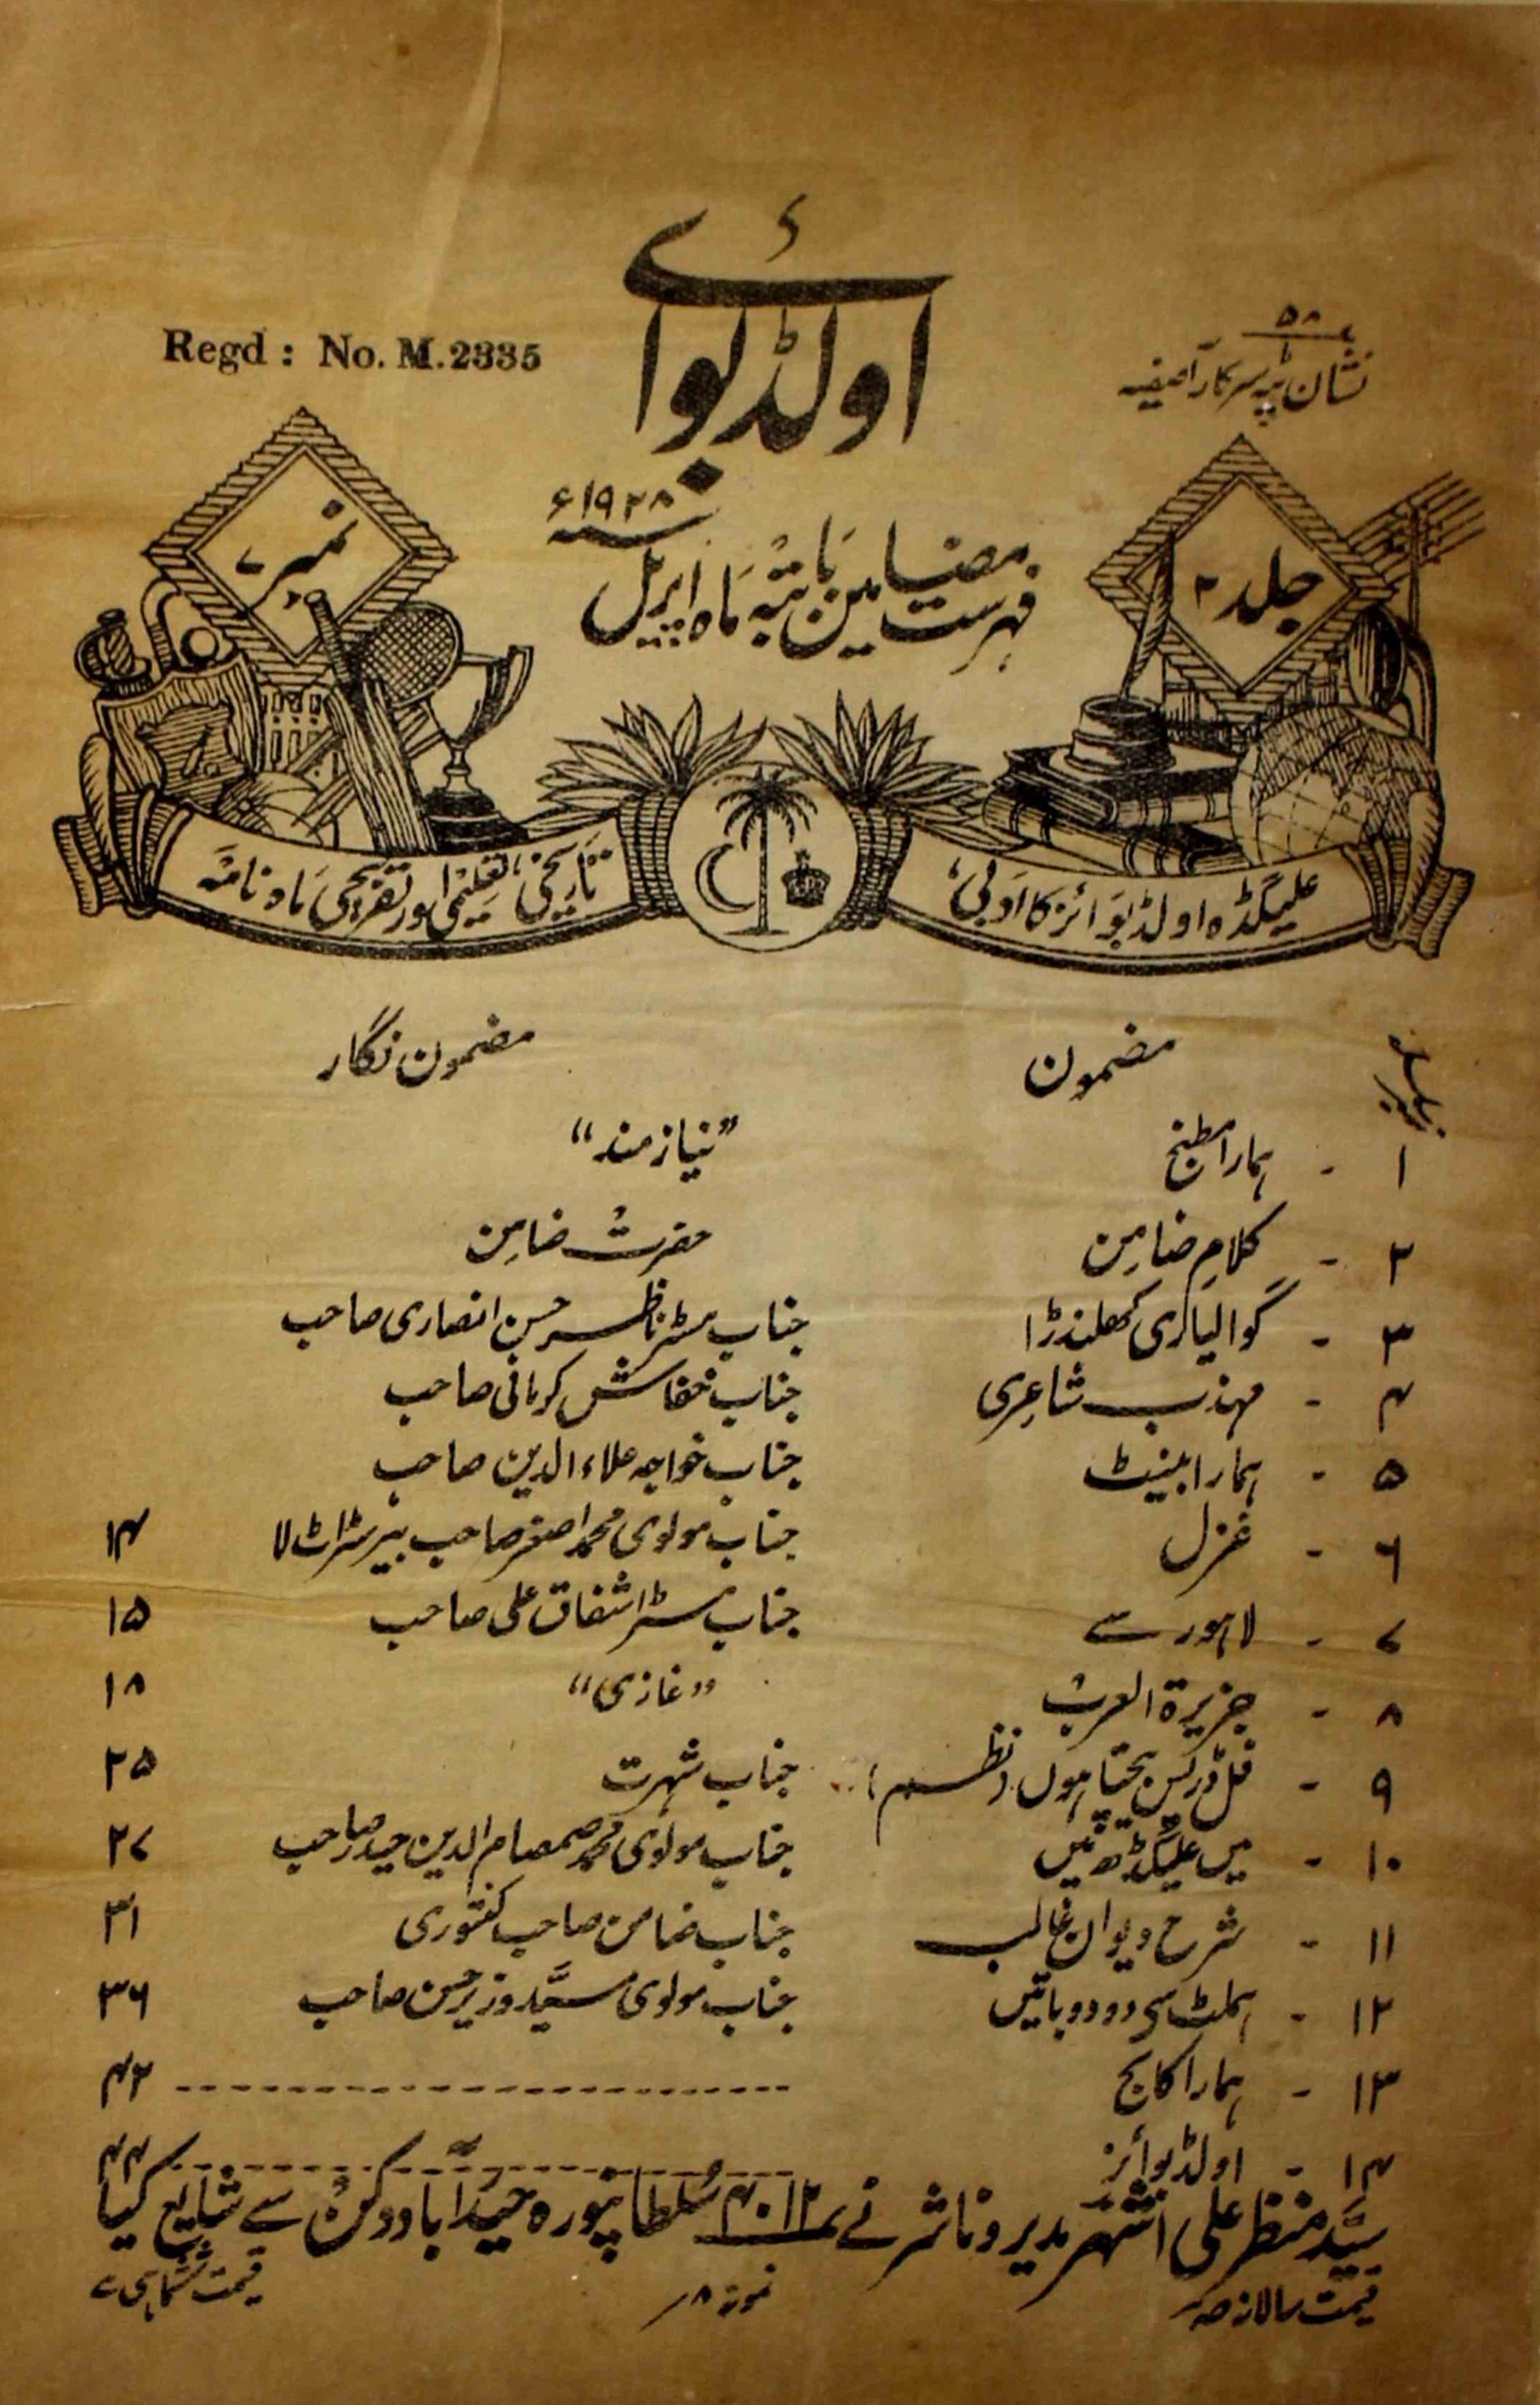 اولڈ بوائے
Regd : No. M.2335
۵۸
نشان ٹپہ سرکار آصفیہ
جلد ۲
نمبر ۷
فہرست مضامین بابتہ ماہ اپریل ۱۹۲۸ء
علیگڈہ اولڈ بوائز کا ادبی،
تاریخی، تعلیمی اور تفریحی ماہ نامہ
مضمون مضمون نگار
۱ - ہمارا مطبخ "نیازمند"
۲ - کلامِ ضامِن حضرت ضامِن
۳ - گوالیاری کھلنڈرا جناب مسٹر ناظر حسن انصاری صاحب
۴ - مہذب شاعری جناب خفاش کرمانی صاحب
۵ - ہمارا بینٹ جناب خواجہ علاء الدین صاحب
۶ - غزل جناب مولوی محمد اصغر صاحب بیرسٹراٹ لا ۱۴
۷ - لاہور سے جناب مسٹر اشفاق علی صاحب ۱۵
۸ - جزیرۃ العرب "غازی" ۱۸
۹ - فل ڈریس بیچتا ہوں (نظم) جناب شہرت ۲۵
۱۰ - میں علیگڈھ میں جناب مولوی محمد صمصام الدین حیدر صاحب ۲۷
۱۱ - شرح دیوان غالب جناب ضامن صاحب کنتوری ۳۱
۱۲ - ہملٹ سی دو دو باتیں جناب مولوی سیّد وزیر حسن صاحب ۳۶
۱۳ - ہمارا کالج ۴۲
۱۴ - اولڈ بوائز ۴۴
سیّد منظر علی اشہر مدیر و ناشر نے ۴۰۱۲ سُلطانپورہ حیدرآباد دکن سے شایع کیا
قیمت سالانہ صہ نمونہ ۸؍ قیمت ششماہی